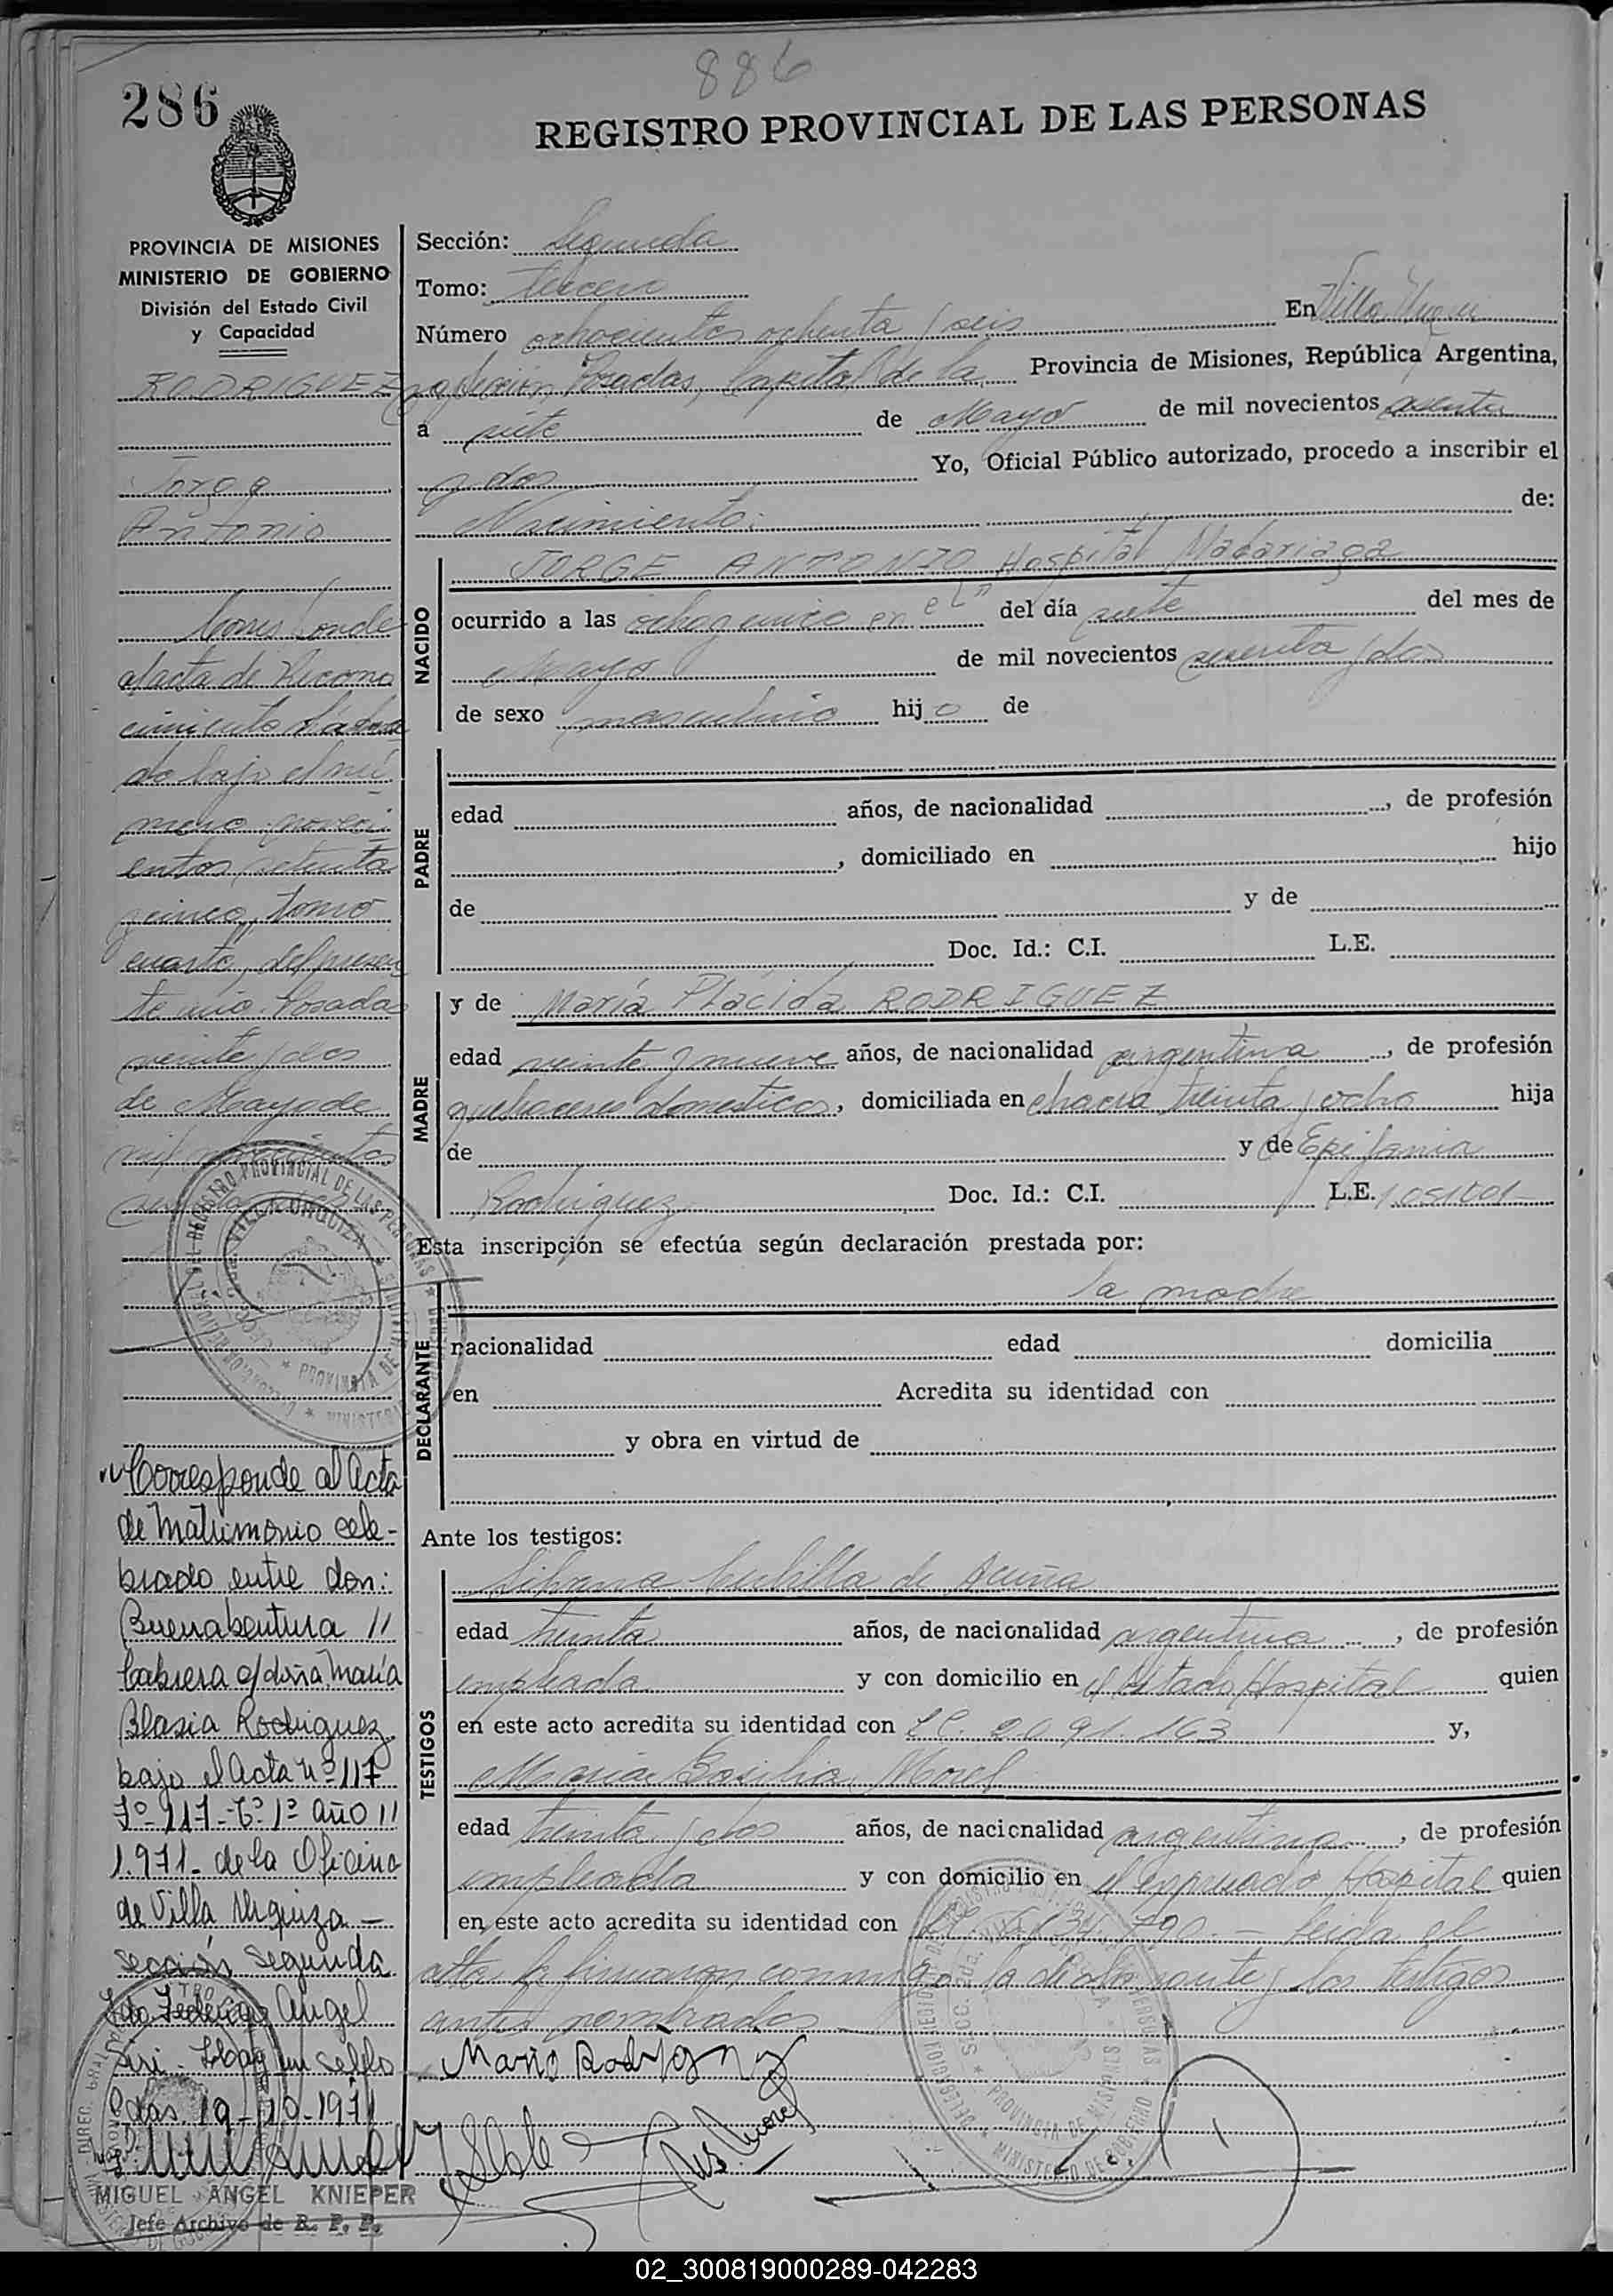 886
286
REGISTRO PROVINCIAL DE LAS PERSONAS
PROVINCIA DE MISIONES
MINISTERIO DE GOBIERNO
División del Estado Civil
y Capacidad
RODRIGUEZ
Jorge
Antonio
Corresponde
al acta de Recono
cimiento
do bajo el nú
mero noveci
entos setenta
y cinco, tomo
cuarto, del presen
te año. Posadas
veinte y dos
de Mayo de
mil novecientos
Corresponde al Acta
de Matrimonio cele-
brado entre don:
Buenabentura //
Cabrera c/doña María
Blasia Rodriguez
bajo el Acta nº 117
Fº 117 - Tº 1º año //
1.971 - de la Oficina
de Villa Urquiza -
sección segunda
Fdo. Federico Angel
Hay un sello
Pdas. 19-10-1971
MIGUEL ANGEL KNIEPER
Jefe Archivo de R. P. P.
Sección: Segunda
Tomo: tercero
Número ochocientos ochenta y seis En Villa Urquiza
Posadas, Capital de la Provincia de Misiones, República Argentina,
a siete de Mayo de mil novecientos sesenta
y dos Yo, Oficial Público autorizado, procedo a inscribir el
Nacimiento: de:
NACIDO
JORGE ANTONIO Hospital Madariaga
ocurrido a las en el del día siete del mes de
Mayo de mil novecientos sesenta y dos
de sexo masculino hijo de
PADRE
edad años, de nacionalidad , de profesión
, domiciliado en hijo
de y de
Doc. Id.: C.I. L.E.
MADRE
y de María Plácida RODRIGUEZ
edad veinte y nueve años, de nacionalidad argentina , de profesión
quehaceres domesticos, domiciliada en chacra treinta y ocho hija
de y de Epifania
Rodriguez Doc. Id.: C.I. L.E.
Esta inscripción se efectúa según declaración prestada por:
DECLARANTE
la madre
nacionalidad edad domicilia
en Acredita su identidad con
y obra en virtud de
Ante los testigos:
TESTIGOS
de Acuña
edad treinta años, de nacionalidad argentina , de profesión
empleada y con domicilio en el Hospital quien
en este acto acredita su identidad con L.C. 2.091.163 y,
Maria Basilia Morel
edad treinta y dos años, de nacionalidad argentina , de profesión
empleada y con domicilio en el expresado Hospital quien
en este acto acredita su identidad con leida el
acta la firmaron conmigo la declarante y los testigos
antes nombrados
02_300819000289-042283